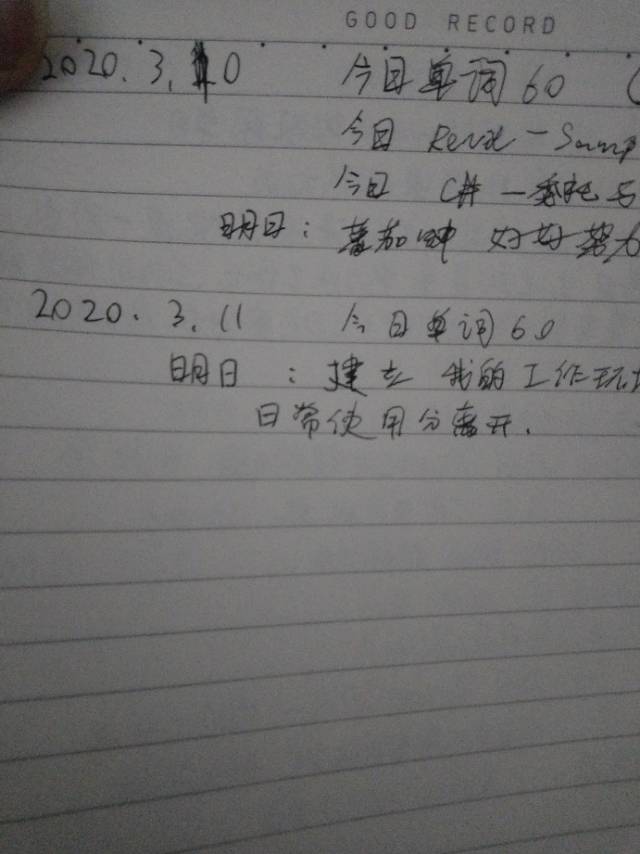 GOOD RECORD
2020.3.10 今日单词60 (
今日
今日 C#一委托与
明日: 蕃茄钟 好好努力
2020.3.11 今日单词60
明日: 建立 我的工作环境
日常使用分离开.